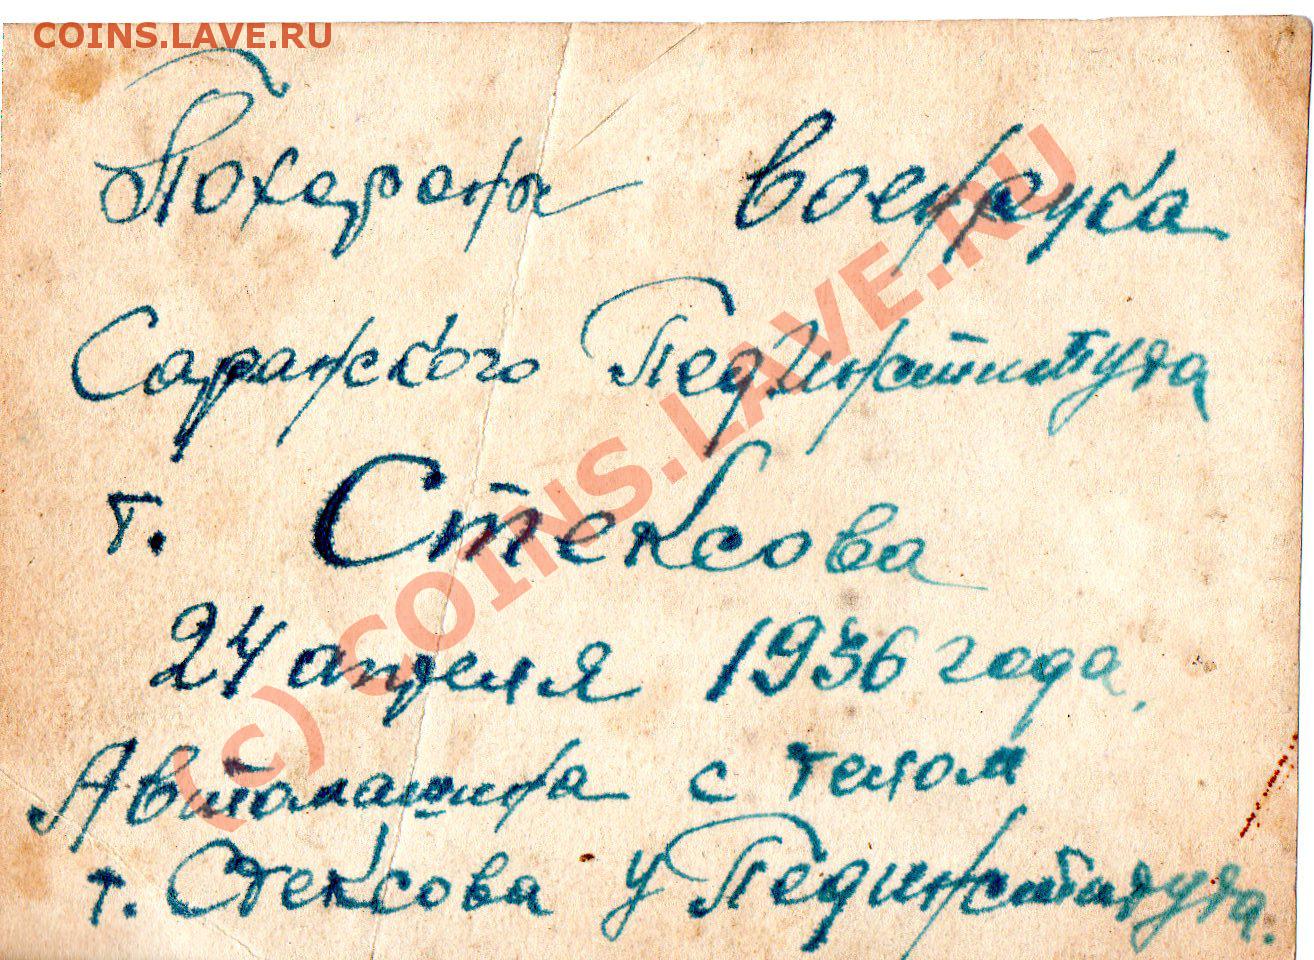 COINS.LAVE.RU
Похороны военрука
Саранского Пединститута
т. Стексова
24 апреля 1936 года.
Автомашина с телом
т. Стексова у Пединститута.
(c) COINS.LAVE.RU